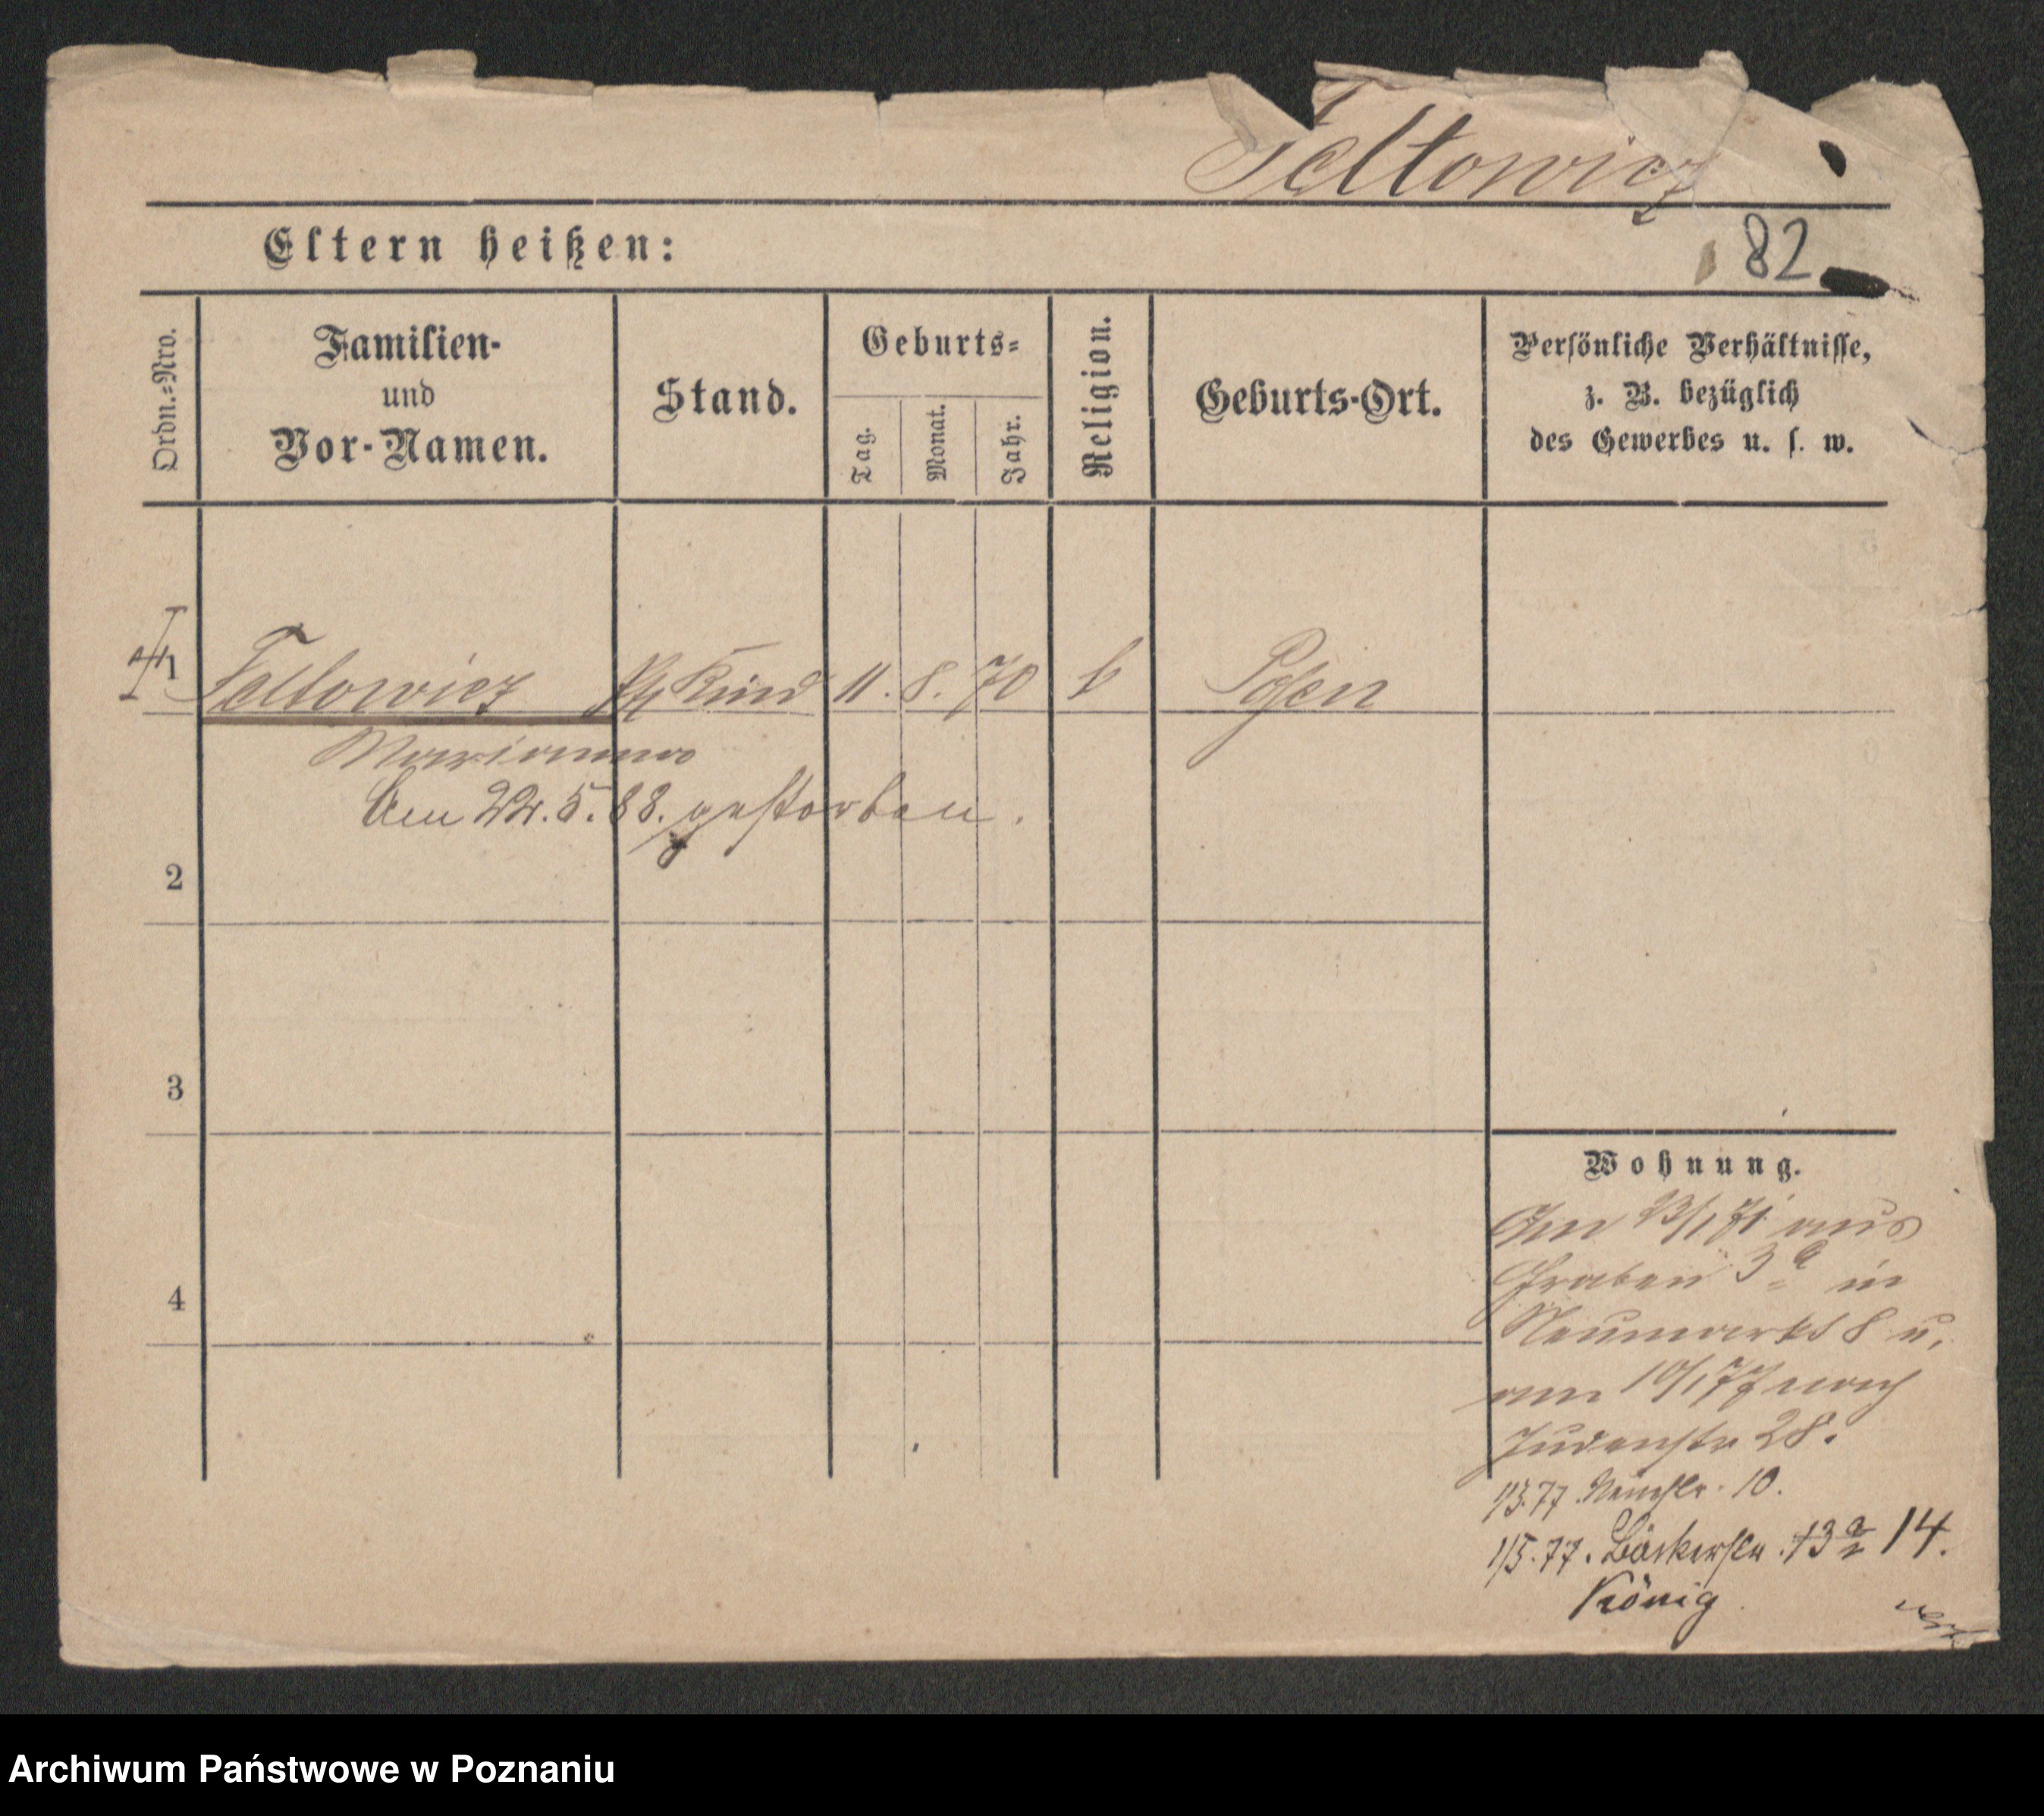 Feltowicz
Eltern heißen:
82
Ordn.=Nro.
Familien-
und
Vor-Namen.
Stand.
Geburts=
Tag.
Monat.
Jahr.
Religion.
Geburts-Ort.
Persönliche Verhältnisse,
z. B. bezüglich
des Gewerbes u. s. w.
1 Feltowicz Kind 11. 8. 70 k Posen
Marianna
Am 22. 5. 88. gestorben.
2
3
4
Wohnung.
Am 23/1 71 aus
Graben 3 a in
8 u.
am 10/1 77 nach
Judenstr 28.
1/3. 77. 10.
1/5. 77. Bäckerstr. 13 a 14.
König